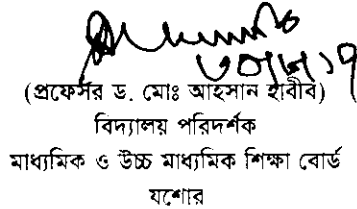 (প্রফেসর ড. মোঃ আহসান হাবীব)
বিদ্যালয় পরিদর্শক
মাধ্যমিক ও উচ্চ মাধ্যমিক শিক্ষা বোর্ড
যশোর